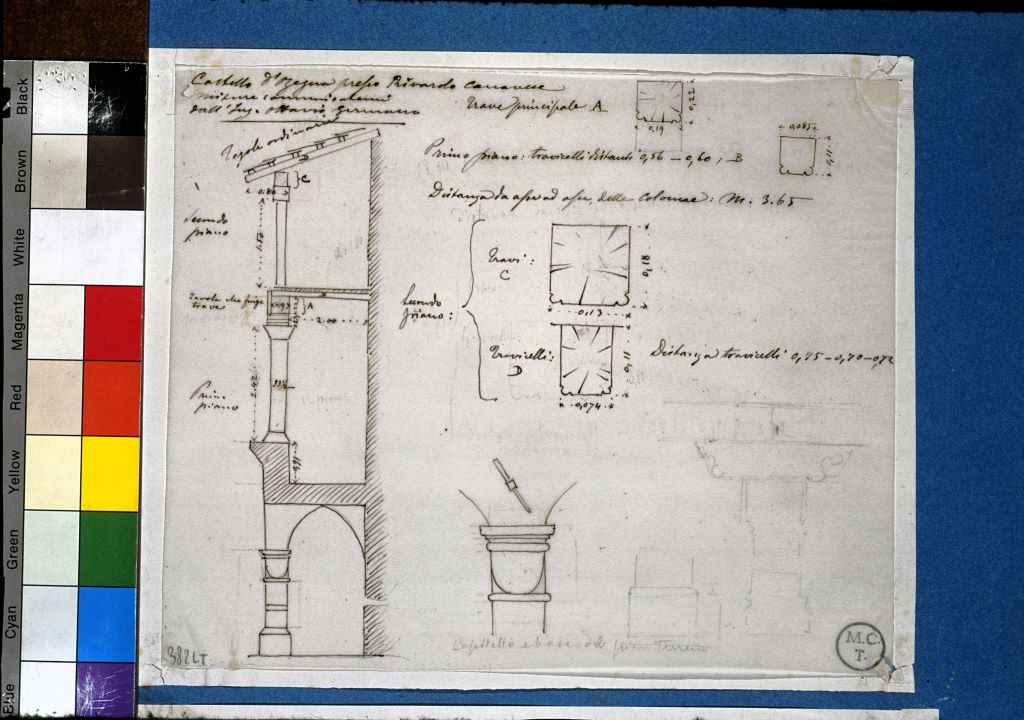 Black
Brown
White
Magenta
Red
Yellow
Green
Cyan
Blue
Castello d'Ozegna presso Rivarolo Canavese
misure
dall'Ing. Ottavio Germano
Tegole ordinarie
Trave principale A
0,22
0,19
0,085
0,11
Primo piano: travicelli distanti 0,56 – 0,60; B
Distanza da asse ad asse delle colonne: M. 3.65
C
0.80
Secondo
piano
1.50
Secondo
piano:
Travi:
C
0,18
0,13
Travicelli:
D
0,11
0,074
Distanza travicelli 0,75 – 0,70 – 0,72
Tavola che
trave
A
2.00
Primo
piano
2.42
Capitello e base del pian terreno
382LT
M.C.
T.